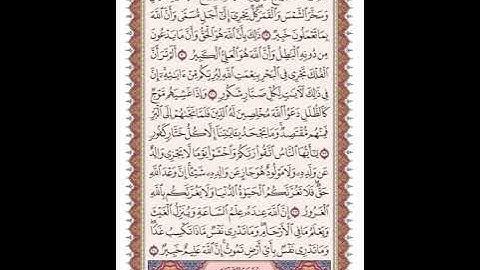 وَسَخَّرَ ٱلشَّمْسَ وَٱلْقَمَرَ كُلٌّ يَجْرِىٓ إِلَىٰٓ أَجَلٍ مُّسَمًّى وَأَنَّ ٱللَّهَ
بِمَا تَعْمَلُونَ خَبِيرٌ ذَٰلِكَ بِأَنَّ ٱللَّهَ هُوَ ٱلْحَقُّ وَأَنَّ مَا يَدْعُونَ
مِن دُونِهِ ٱلْبَٰطِلُ وَأَنَّ ٱللَّهَ هُوَ ٱلْعَلِىُّ ٱلْكَبِيرُ أَلَمْ تَرَ أَنَّ
ٱلْفُلْكَ تَجْرِى فِى ٱلْبَحْرِ بِنِعْمَتِ ٱللَّهِ لِيُرِيَكُم مِّنْ ءَايَٰتِهِۦٓ إِنَّ
فِى ذَٰلِكَ لَءَايَٰتٍ لِّكُلِّ صَبَّارٍ شَكُورٍ وَإِذَا غَشِيَهُم مَّوْجٌ
كَٱلظُّلَلِ دَعَوُا۟ ٱللَّهَ مُخْلِصِينَ لَهُ ٱلدِّينَ فَلَمَّا نَجَّىٰهُمْ إِلَى ٱلْبَرِّ
فَمِنْهُم مُّقْتَصِدٌ وَمَا يَجْحَدُ بِـَٔايَٰتِنَآ إِلَّا كُلُّ خَتَّارٍ كَفُورٍ
يَٰٓأَيُّهَا ٱلنَّاسُ ٱتَّقُوا۟ رَبَّكُمْ وَٱخْشَوْا۟ يَوْمًا لَّا يَجْزِى وَالِدٌ
عَن وَلَدِهِۦ وَلَا مَوْلُودٌ هُوَ جَازٍ عَن وَالِدِهِۦ شَيْـًٔا إِنَّ وَعْدَ ٱللَّهِ
حَقٌّ فَلَا تَغُرَّنَّكُمُ ٱلْحَيَوٰةُ ٱلدُّنْيَا وَلَا يَغُرَّنَّكُم بِٱللَّهِ
ٱلْغَرُورُ إِنَّ ٱللَّهَ عِندَهُۥ عِلْمُ ٱلسَّاعَةِ وَيُنَزِّلُ ٱلْغَيْثَ
وَيَعْلَمُ مَا فِى ٱلْأَرْحَامِ وَمَا تَدْرِى نَفْسٌ مَّاذَا تَكْسِبُ غَدًا
وَمَا تَدْرِى نَفْسٌۢ بِأَىِّ أَرْضٍ تَمُوتُ إِنَّ ٱللَّهَ عَلِيمٌ خَبِيرٌ